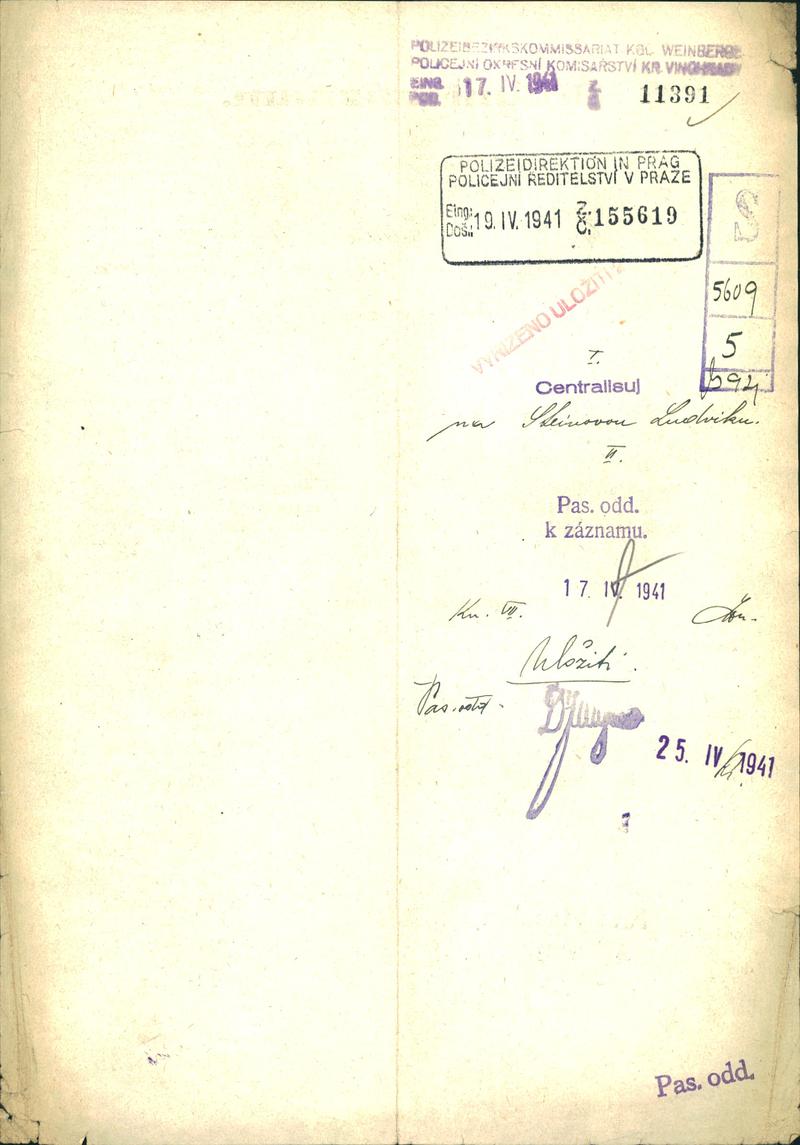 POLIZEIBEZIRKSKOMMISSARIAT KGL. WEINBERGE
POLICEJNÍ OKRESNÍ KOMISAŘSTVÍ KR. VINOHRADY
EING. 17. IV. 1941 Z 11391
POD. Č
POLIZEIDIREKTION IN PRAG
POLICEJNÍ ŘEDITELSTVÍ V PRAZE
Eing.: 19. IV. 1941 Z. 155619
Doš.: Č.
S
5609
5
VYŘÍZENO ULOŽITI
I.
Centralisuj
na Steinovou Ludviku.
II.
Pas. odd.
k záznamu.
17. IV. 1941
Kn. VII.
Uložiti.
Pas. odd.
25. IV. 1941
Pas. odd.